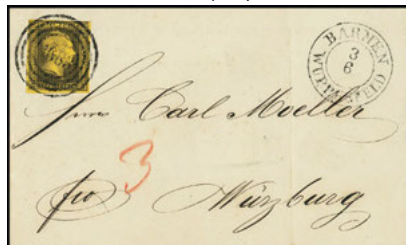 BARMEN
3
6
WUPPERFELD
Herrn Carl Moeller
3
fro Würzburg